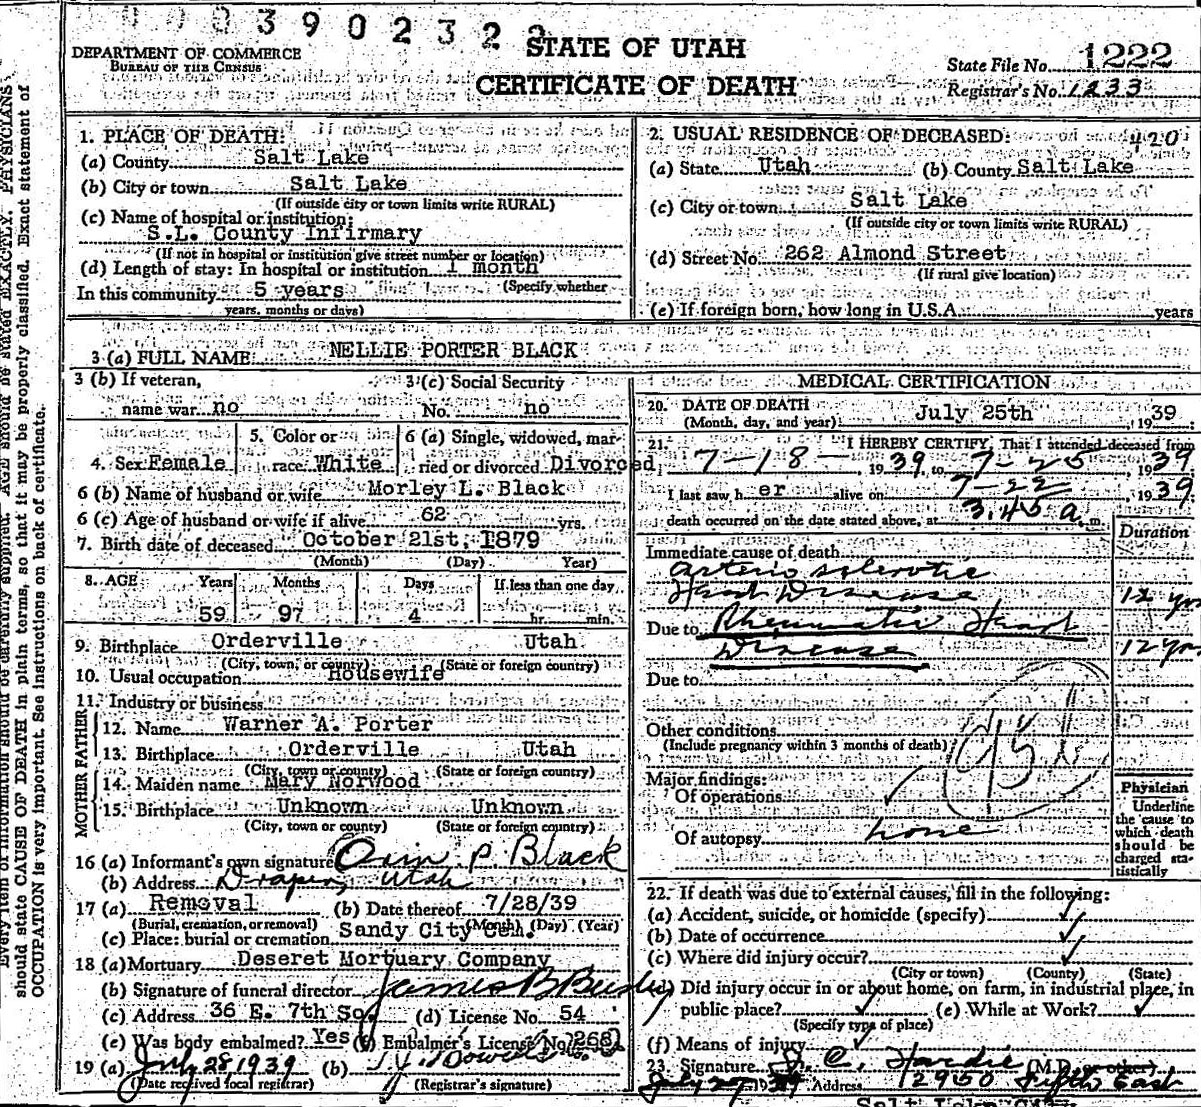 00039023 2 2
STATE OF UTAH
CERTIFICATE OF DEATH
DEPARTMENT OF COMMERCE
BUREAU OF THE CENSUS
State File No. 1222
Registrar's No. 1233
1. PLACE OF DEATH:
(a) County Salt Lake
(b) City or town Salt Lake
(If outside city or town limits write RURAL)
(c) Name of hospital or institution:
S.L. County Infirmary
(If not in hospital or institution give street number or location)
(d) Length of stay: In hospital or institution 1 month
(Specify whether
In this community 5 years
years, months or days)
2. USUAL RESIDENCE OF DECEASED: 420
(a) State Utah (b) County Salt Lake
(c) City or town Salt Lake
(If outside city or town limits write RURAL)
(d) Street No. 262 Almond Street
(If rural give location)
(e) If foreign born, how long in U.S.A. years
3 (a) FULL NAME NELLIE PORTER BLACK
3 (b) If veteran,
name war no
3 (c) Social Security
No. no
4. Sex Female
5. Color or
race White
6 (a) Single, widowed, mar-
ried or divorced Divorced
6 (b) Name of husband or wife Morley L. Black
6 (c) Age of husband or wife if alive 62 yrs.
7. Birth date of deceased October 21st, 1879
(Month) (Day) Year)
8. AGE Years Months Days If less than one day
59 9 4 hr. min.
9. Birthplace Orderville Utah
(City, town, or county) (State or foreign country)
10. Usual occupation Housewife
11. Industry or business
FATHER
12. Name Warner A. Porter
13. Birthplace Orderville Utah
(City, town or county) (State or foreign country)
MOTHER
14. Maiden name Mary Norwood
15. Birthplace Unknown Unknown
(City, town or county) (State or foreign country)
16 (a) Informant's own signature Orin P. Black
(b) Address Draper, Utah
17 (a) Removal (b) Date thereof 7/28/39
(Burial, cremation, or removal) (Month) (Day) (Year)
(c) Place: burial or cremation Sandy City Cem.
18 (a) Mortuary Deseret Mortuary Company
(b) Signature of funeral director James B
(c) Address 36 E. 7th So. (d) License No. 54
(e) Was body embalmed? Yes (f) Embalmer's License No. 268
19 (a) July 28, 1939 (b)
(Date received local registrar) (Registrar's signature)
MEDICAL CERTIFICATION
20. DATE OF DEATH
(Month, day, and year) July 25th 1939
21. I HEREBY CERTIFY, That I attended deceased from
7-18- 1939, to 7-25 1939
I last saw h er alive on 7-22 1939,
death occurred on the date stated above, at 3.45 a. m.
Duration
Immediate cause of death
Arterio sclerotic
Heart Disease 12 yrs
Due to Rheumatic Heart
Disease 12 yrs
Due to
Other conditions
(Include pregnancy within 3 months of death)
Major findings:
Of operations
Of autopsy none
Physician
Underline
the cause to
which death
should be
charged sta-
tistically
22. If death was due to external causes, fill in the following:
(a) Accident, suicide, or homicide (specify)
(b) Date of occurrence
(c) Where did injury occur?
(City or town) (County) (State)
(d) Did injury occur in or about home, on farm, in industrial place, in
public place? (e) While at Work?
(Specify type of place)
(f) Means of injury
23. Signature C. Hardie (M.D. or other)
July 27 1939 Address 2950 Fifth East
Salt Lake City
should state CAUSE OF DEATH in plain terms, so that it may be properly classified. Exact statement of
OCCUPATION is very important. See instructions on back of certificate.